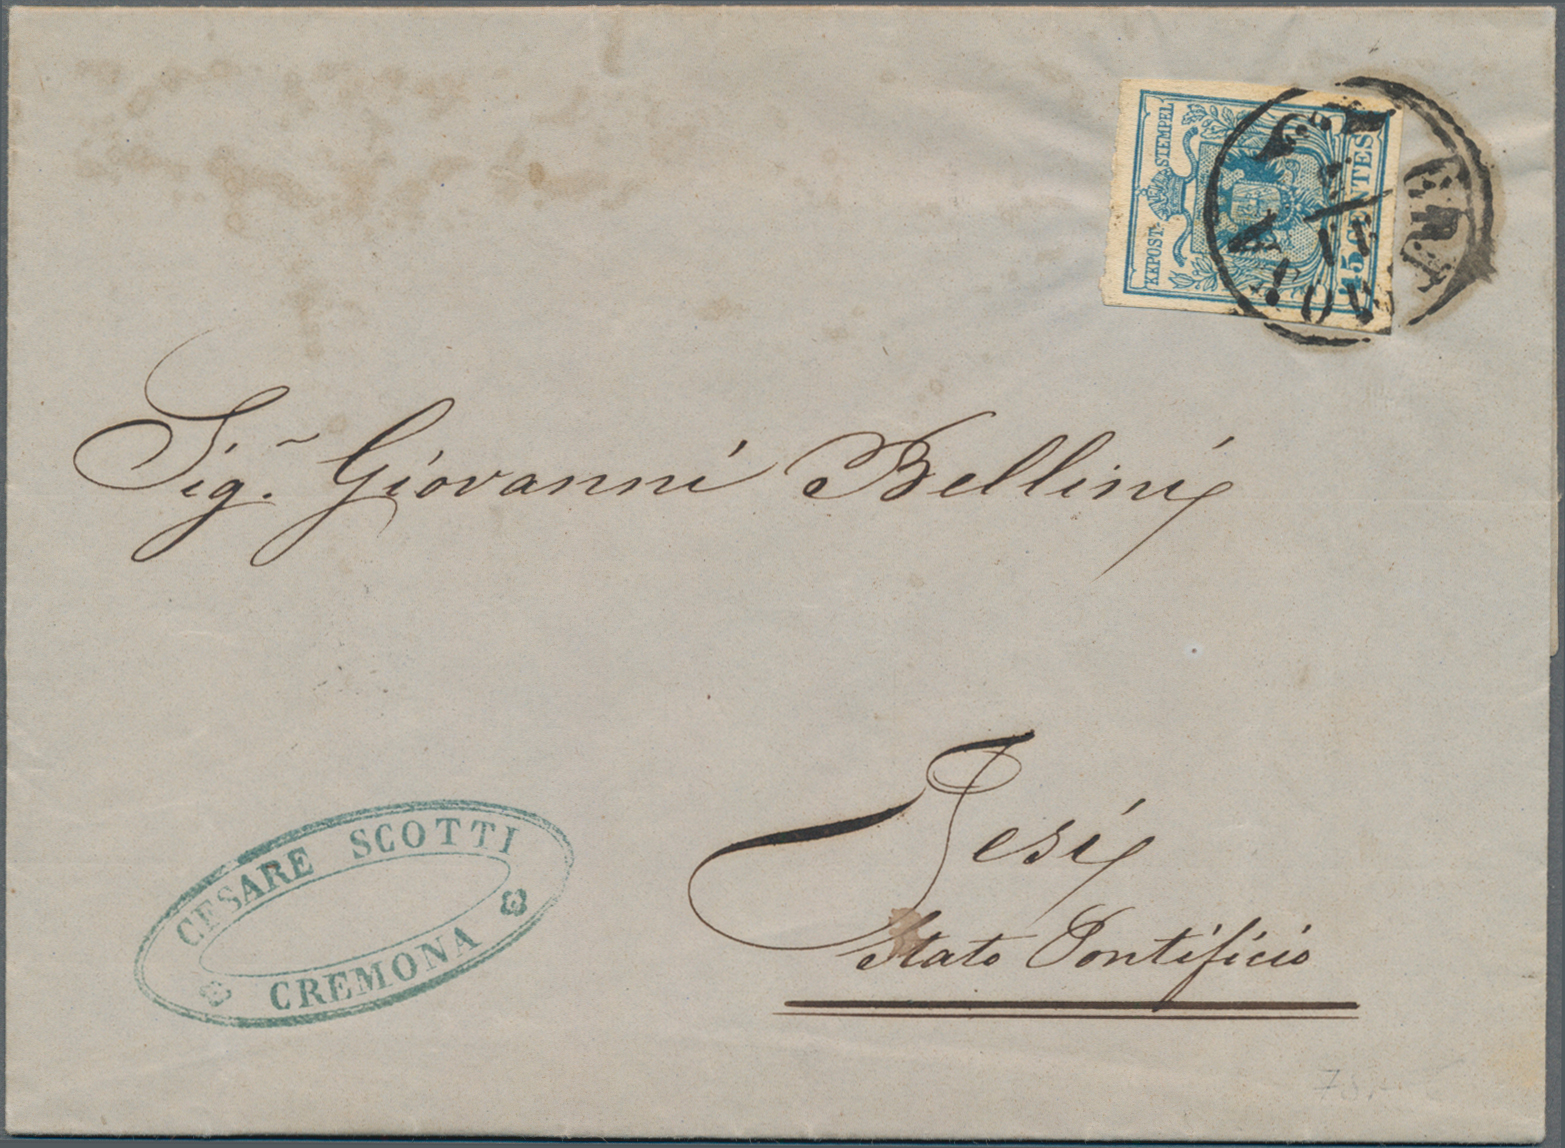 KKPOST-STEMPEL
45 CENTES
Sig.r Giovanni Bellini
Jesi
Stato Pontificio
CESARE SCOTTI
CREMONA